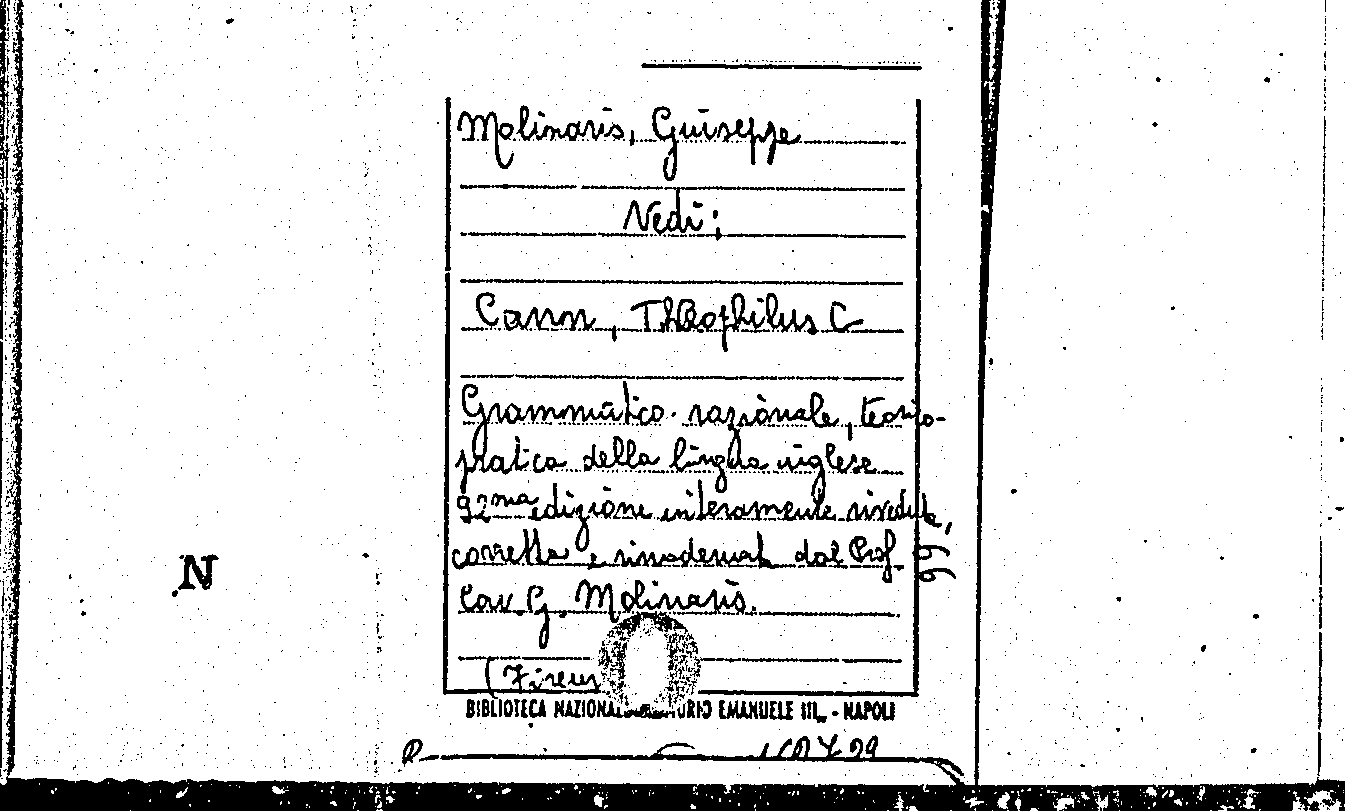 Molinaris, Giuseppe
Vedi:
Cann, Theophilus C
Grammatica razionale, teorico-
pratica della lingua inglese
92ma edizione interamente riveduta,
corretta e rimodernata dal Prof.
Cav. G. Molinaris.
(Firenz
BIBLIOTECA NAZIONALE VITTORIO EMANUELE III. - NAPOLI
N
99.